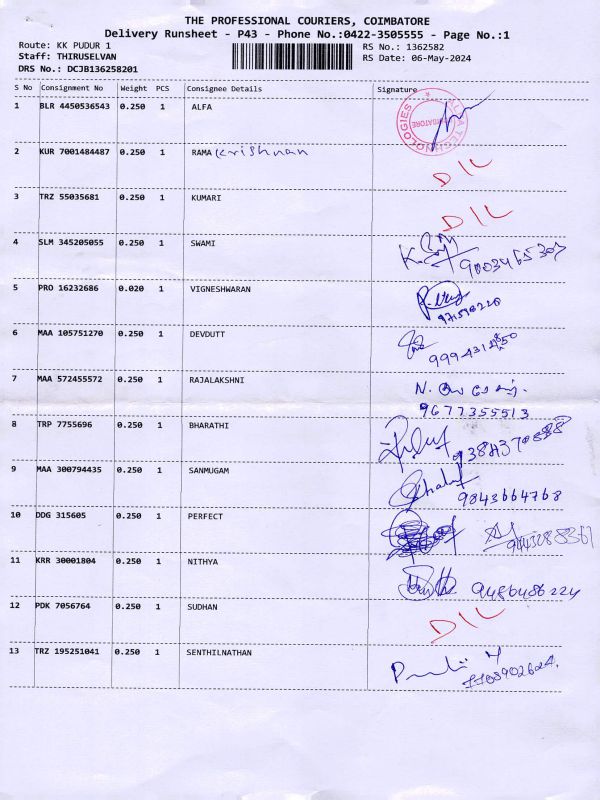 THE PROFESSIONAL COURIERS, COIMBATORE
Delivery Runsheet - P43 - Phone No.:0422-3505555 - Page No.:1
Route: KK PUDUR 1 RS No.: 1362582
Staff: THIRUSELVAN RS Date: 06-May-2024
DRS No.: DCJB136258201
S No Consignment No Weight PCS Consignee Details Signature
1 BLR 4450536543 0.250 1 ALFA
2 KUR 7001484487 0.250 1 RAMA Krishnan D/L
3 TRZ 55035681 0.250 1 KUMARI D/L
4 SLM 345205055 0.250 1 SWAMI 9003465307
5 PRO 16232686 0.020 1 VIGNESHWARAN
6 MAA 105751270 0.250 1 DEVDUTT
7 MAA 572455572 0.250 1 RAJALAKSHNI
9677355513
8 TRP 7755696 0.250 1 BHARATHI
9 MAA 300794435 0.250 1 SANMUGAM 9843664768
10 DDG 315605 0.250 1 PERFECT
11 KRR 30001804 0.250 1 NITHYA 9486486224
12 PDK 7056764 0.250 1 SUDHAN D/L
13 TRZ 195251041 0.250 1 SENTHILNATHAN